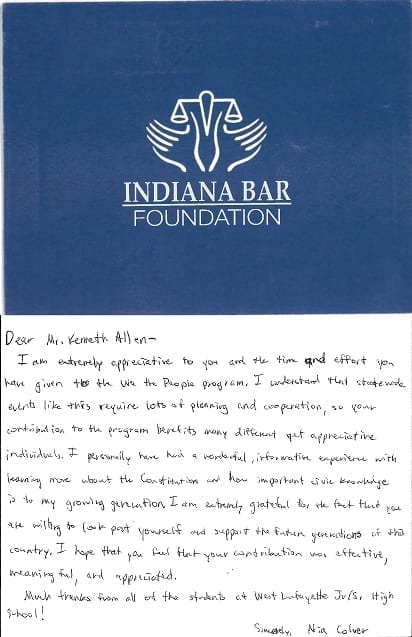 INDIANA BAR
FOUNDATION
Dear Mr. Kenneth Allen-
I am extremely appreciative to you and the time and effort you
have given to the We the People program. I understand that statewide
events like this require lots of planning and cooperation, so your
contribution to the program benefits many different yet appreciative
individuals. I personally have had a wonderful, informative experience with
learning more about the Constitution and how important civic knowledge
is to my growing generation. I am extremely grateful for the fact that you
are willing to look past yourself and support the future generations of this
country. I hope that you feel that your contribution was effective,
meaningful, and appreciated.
Much thanks from all of the students at West Lafayette Jr/Sr. High
School!
Sincerely, Nia Colver